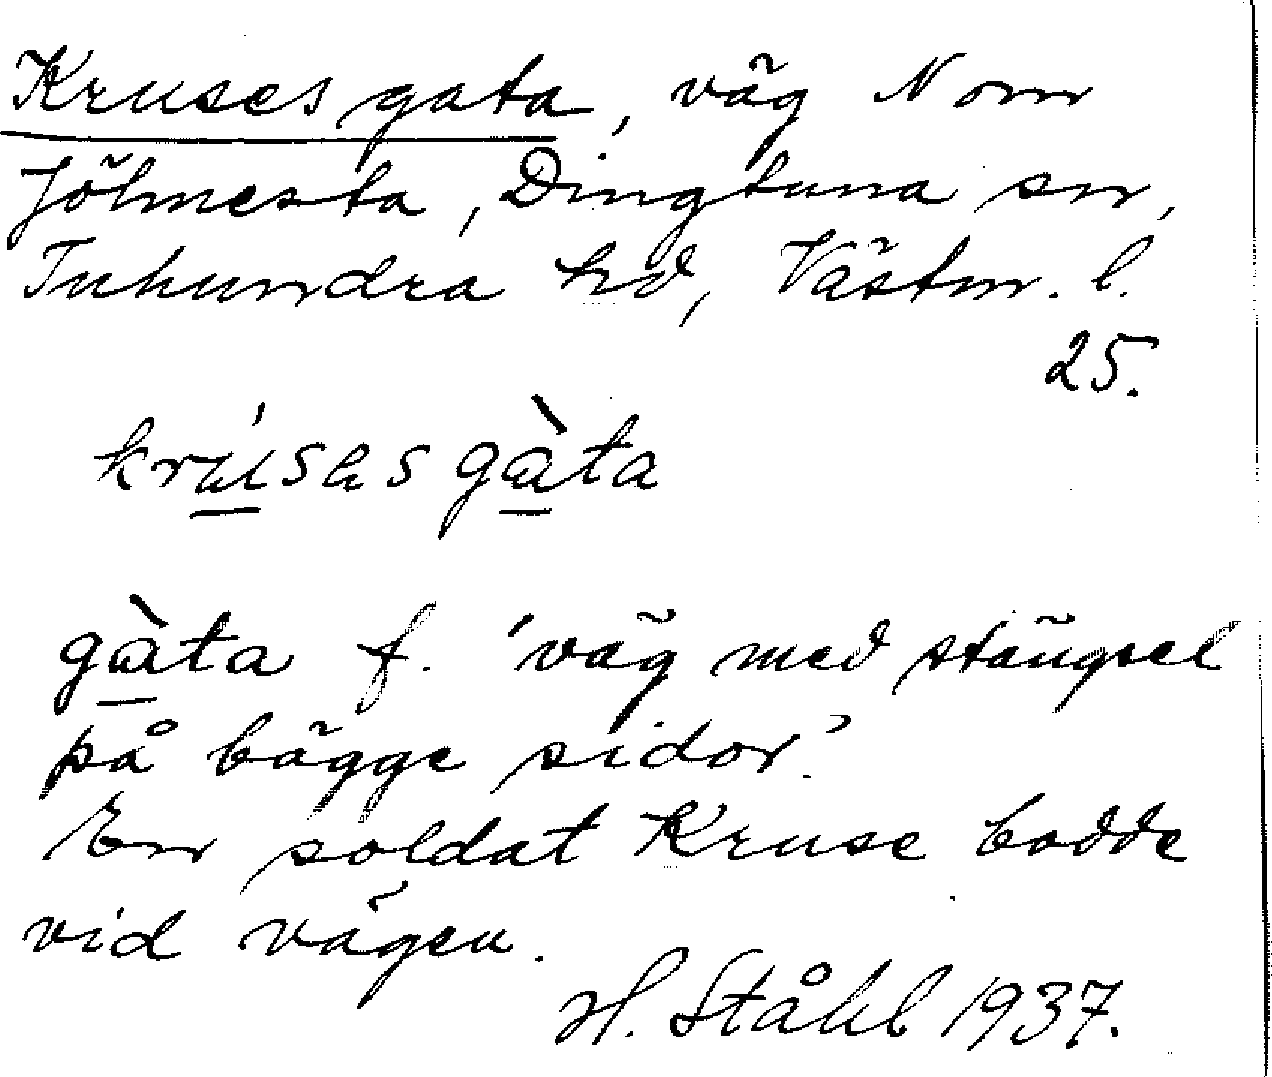 Kruses gata, väg N om
Jölmesta, Dingtuna sn,
Tuhundra hd, Västm. l.
25.
krúsas gàta
gàta f. 'väg med stängsel
på bägge sidor'.
En soldat Kruse bodde
vid vägen.
H. Ståhl 1937.